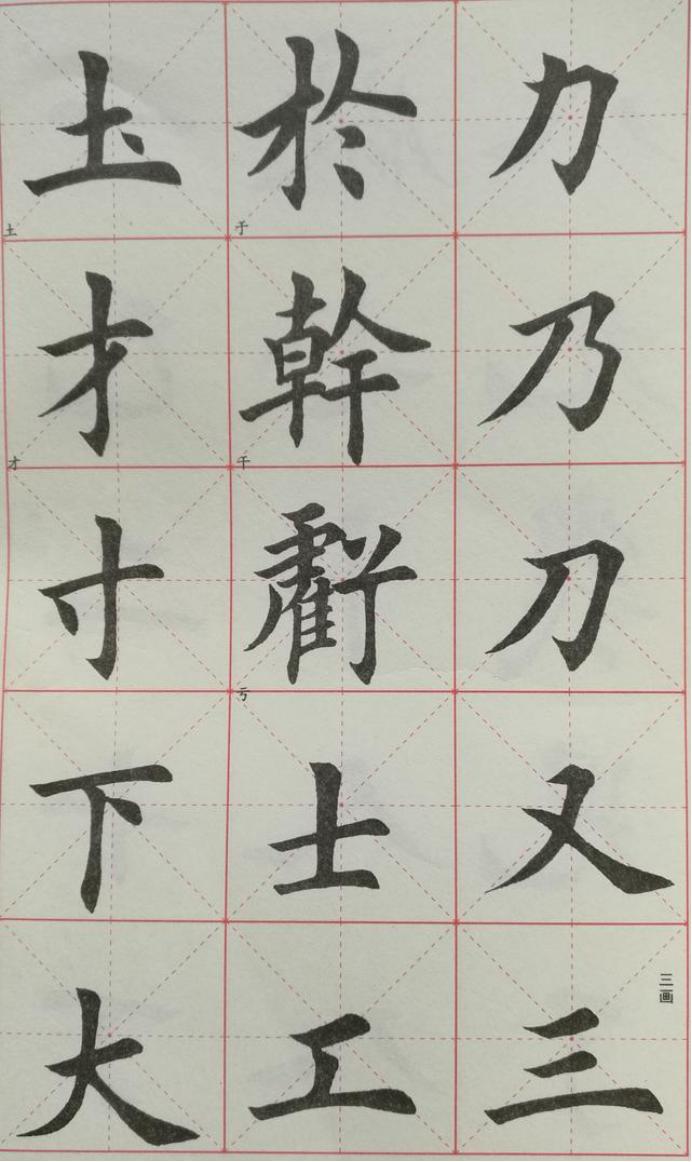 力乃刀又三
三画
於幹虧士工
于
干
亏
圡才寸下大
土
才